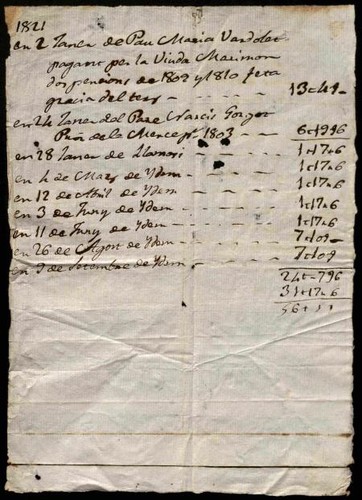 1821
en 2 Janer de Pau Maria Vardolet
pagant per la Viuda Marimon
dos pencions de 1809 y 1810 feta
gracia del ters - - 13 t 4 s -
en 24 Janer del Pare Narcis
Prior de la Merce pr. 1803 - 6 t 19 s 6
en 28 Janer de Llamosi - 1 t 17 s 6
en 4 de Mars de Ydem - 1 t 17 s 6
en 12 de Abril de Ydem - - 1 t 17 s 6
en 3 de Juny de Ydem - - 1 t 17 s 6
en 11 de Juny de Ydem - - 1 t 17 s 6
en 26 de Agost de Ydem - -
en 9 de Setembre de Ydem - -